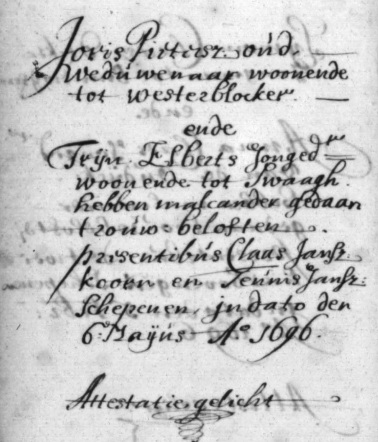 Joris Pietersz oud
Weduwenaar woonende
tot Westerblocker.
ende
Trijn Elberts Jonged.r
woonende tot Swaagh.
hebben malcander gedaan
trouw-beloften.
presentibus Claas Jansz
koorn en Teunis Jansz
Schepenen, in dato den
6: Maijus A.o 1696.
Attestatie gelicht